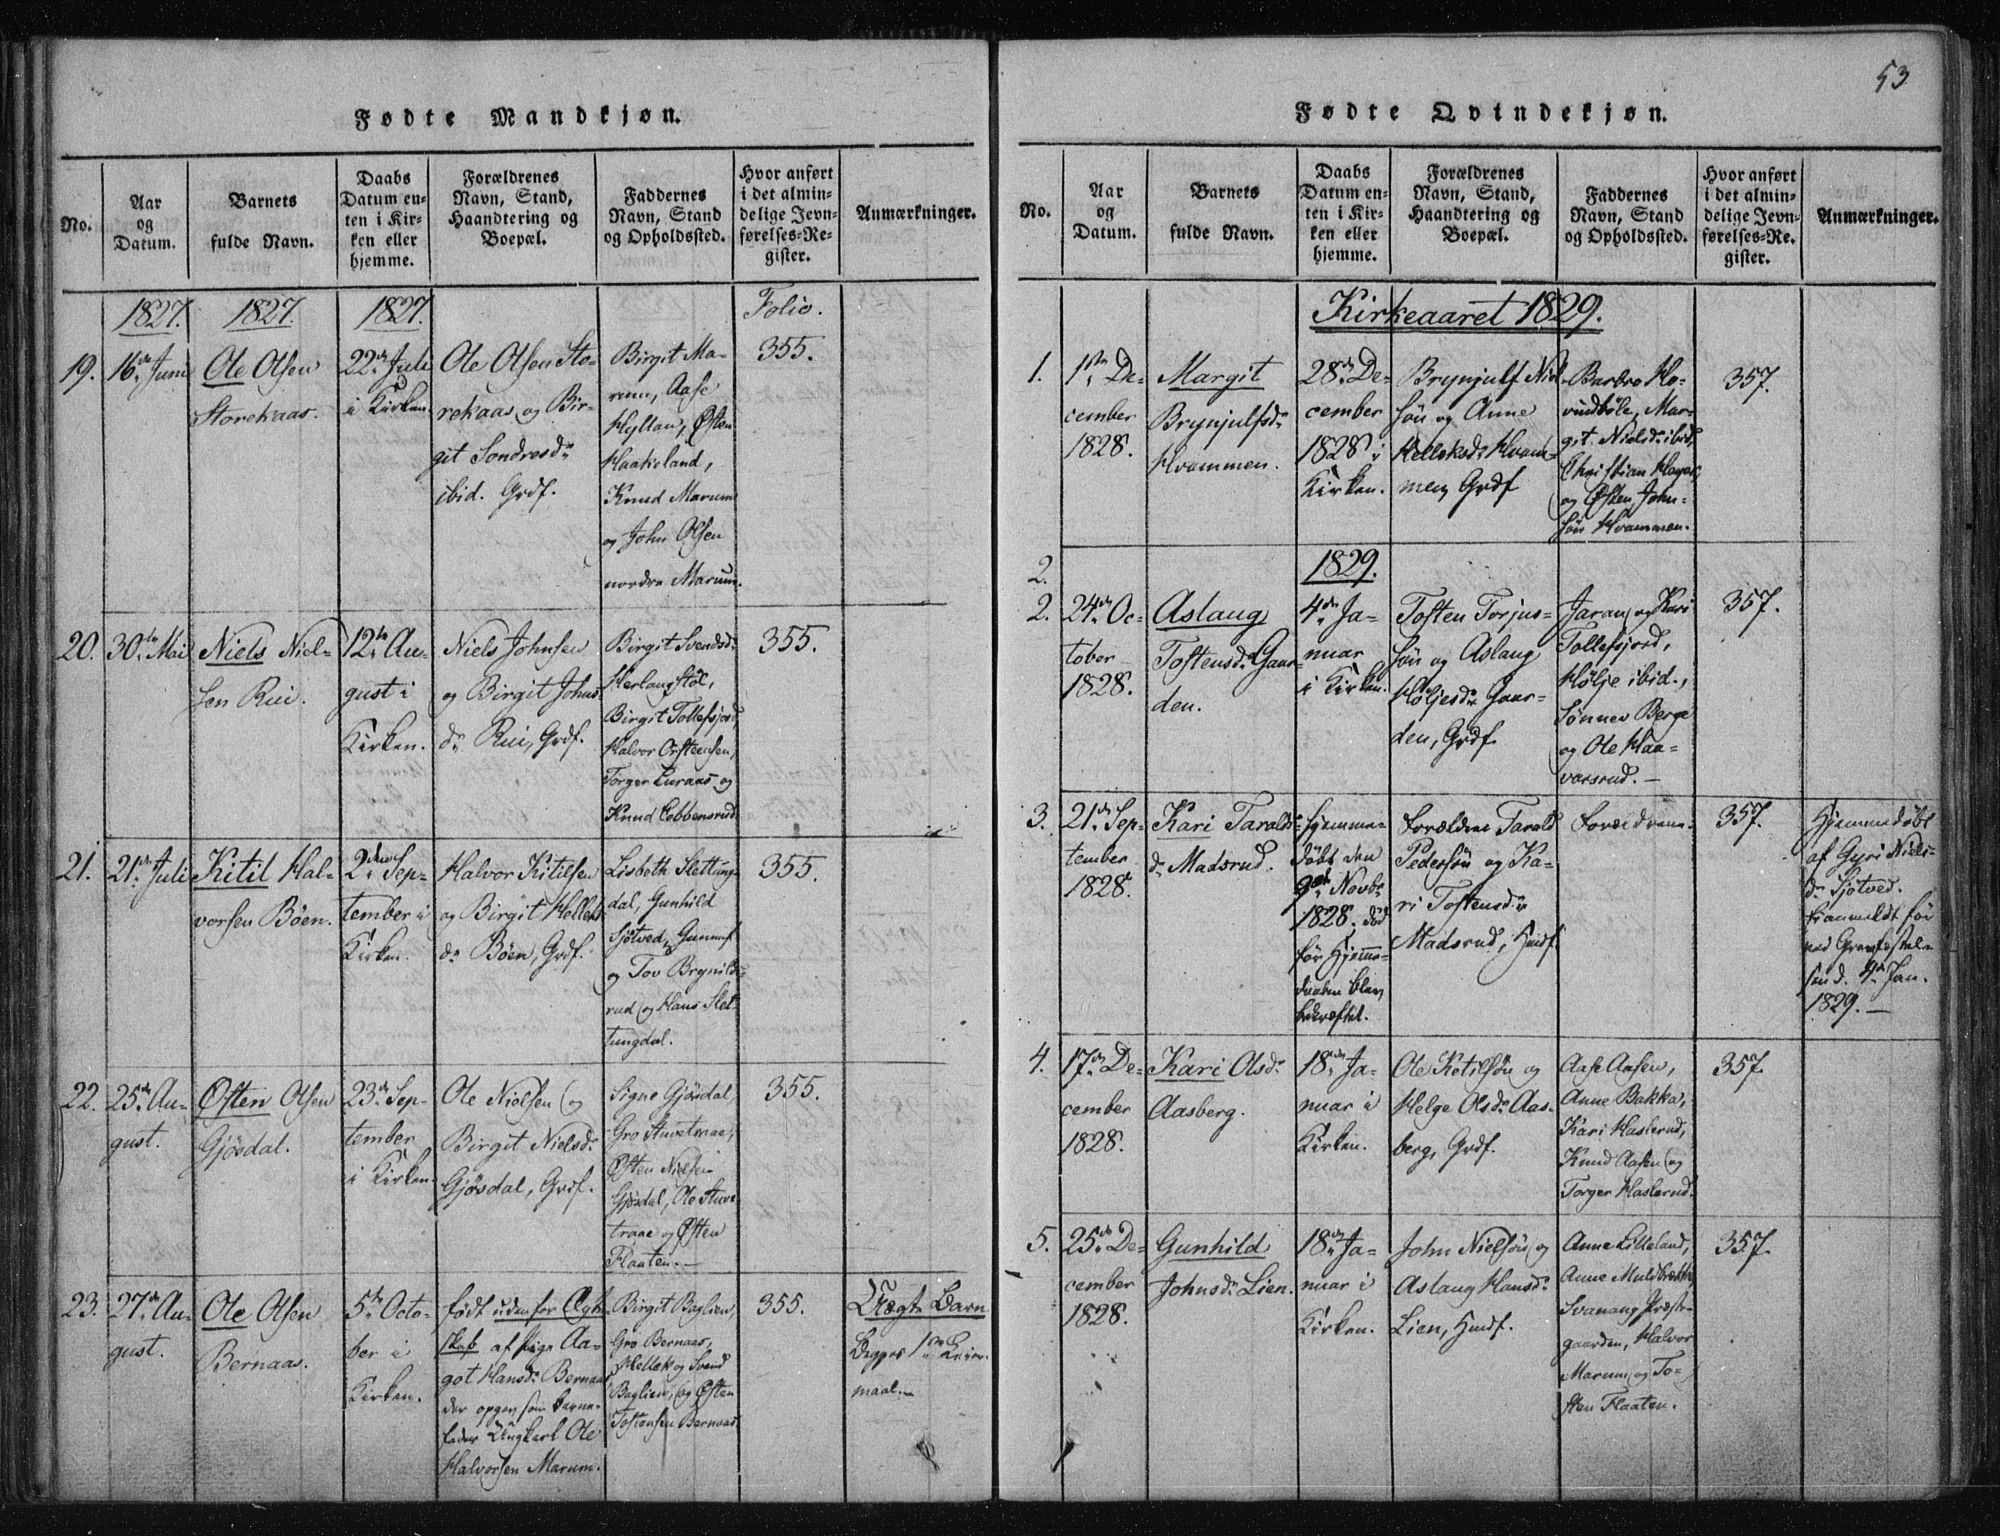 53
Fødte Mandkjøn.
No.
Aar
og
Datum.
Barnets
fulde Navn.
Daabs
Datum en-
ten i Kir-
ken eller
hjemme.
Forældrenes
Navn, Stand,
Haandtering og
Boepæl.
Faddernes
Navn, Stand
og Opholdssted.
Hvor anført
i det almin-
delige Jevn-
førelses-Re-
gister.
Anmærkninger.
1827.
1827.
1827.
Folio.
19.
16de Juni
Ole Olsen
Storekaas.
22de Juli
i Kirken.
Ole Olsen Sto-
rekaas og Bir-
git Sondresdr
ibid. Grdf.
Birgit Ma-
rum, Aase
Hyltan, Østen
Haakoland,
Knud Marum
og John Olsen
nordre Marum.
355.
20.
30te Mai
Niels Niel-
sen Rui.
12te Au-
gust i
Kirken.
Niels Johnsen
og Birgit Johns
dr Rui, Grdf.
Birgit Svendsdr
Herlaugstøl,
Birgit Tollefsjord
Halvor Orsteensen,
Torger Luraas og
Knud Cobbensrud
355.
21.
21de Juli
Kitil Hal-
vorsen Böen.
2den Sep-
tember i
Kirken.
Halvor Kitilsen
og Birgit Helleks
dr Böen, Grdf.
Lisbeth Slettung-
dal, Gunhild
Sjötved, Gunnuf
og Tov Brynilds-
rud og Hans Slet
tungdal.
355.
22.
25de Au-
gust.
Østen Olsen
Gjösdal.
23de Sep-
tember
i Kirken.
Ole Nielsen og
Birgit Nielsdr
Gjösdal, Grdf.
Signe Gjösdal,
Gro Stuvetraae,
Østen Nielsen
Gjösdal, Ole Stuve-
traae og Østen
Flaaten.
355.
23.
27de Au-
gust.
Ole Olsen
Bernaas.
5te Octo-
ber i
Kirken.
født udenfor Ægte-
skab af Pige Aa-
got Hansdr Bernaas
der opgev som barne-
fader Ungkarl Ole
Halvorsen Marum.
Birgit Baglien,
Gro Bernaas,
Hellek og Svend
Baglien, og Østen
Tostensen Bernaas.
355.
Uægte Barn
Begges 1ste Leier-
maal.
Fødte Qvindekjøn.
No.
Aar
og
Datum.
Barnets
fulde Navn.
Daabs
Datum en-
ten i Kir-
ken eller
hjemme.
Forældrenes
Navn, Stand,
Haandtering og
Boepæl.
Faddernes
Navn, Stand
og Opholdssted.
Hvor anført
i det almin-
delige Jevn-
førelses-Re-
gister.
Anmærkninger.
Kirkeaaret 1829.
1.
1ste De-
cember
1828.
Margit
Brynjulfsdr
Hvammen.
28de De-
cember
1828 i
Kirken.
Brynjulf Niel-
sön og Anne
Helleksdr Hvam-
men, Grdf
Barbro Ho-
vindböle, Mar-
git Nielsdr ibid,
Christian Hagen,
og Østen John-
sön Hvammen.
357.
2.
1829.
2.
24de Oc-
tober
1828.
Aslaug
Tostensdr Gaar-
den.
4de Ja-
nuar
i Kirken.
Tosten Torjus-
sön og Aslaug
Höljesdr Gaar-
den, Grdf.
Jaran og Kari
Tollefsjord,
Hølje ibid.,
Sønnev Berge
og Ole Haa-
varsrud.
357.
3.
21de Sep-
tember
1828.
Kari Taralds-
dr Madsrud.
Hjemme-
döbt den
9de Novbr
1828. död
för Hjemme-
daaben blev
bekræftet.
Forældre Tarald
Pedersön og Ka-
ri Tostensdr
Madsrud, Hmdf.
Forældrene.
357.
Hjemmedöbt
af Gyri Niels-
dr Sjötved.
4de Jan.
1829.
4.
17de De-
cember
1828.
Kari Olsdr
Aasberg.
18de Ja-
nuar i
Kirken.
Ole Ketilsön og
Helge Olsdr Aas-
berg, Grdf.
Aase Aasen,
Anne Bakka,
Kari Haslerud,
Knud Aasen og
Torger Haslerud.
357.
5.
25de De-
cember
1828.
Gunhild
Johnsdr Lien.
18de Ja-
nuar i
Kirken.
John Nielsön og
Aslaug Hansdr
Lien, Hmdf.
Anne Lilleland,
Anne Muldbrekke
Svanaug Præste-
gaarden, Halvor
Marum og To-
sten Flaaten.
357.